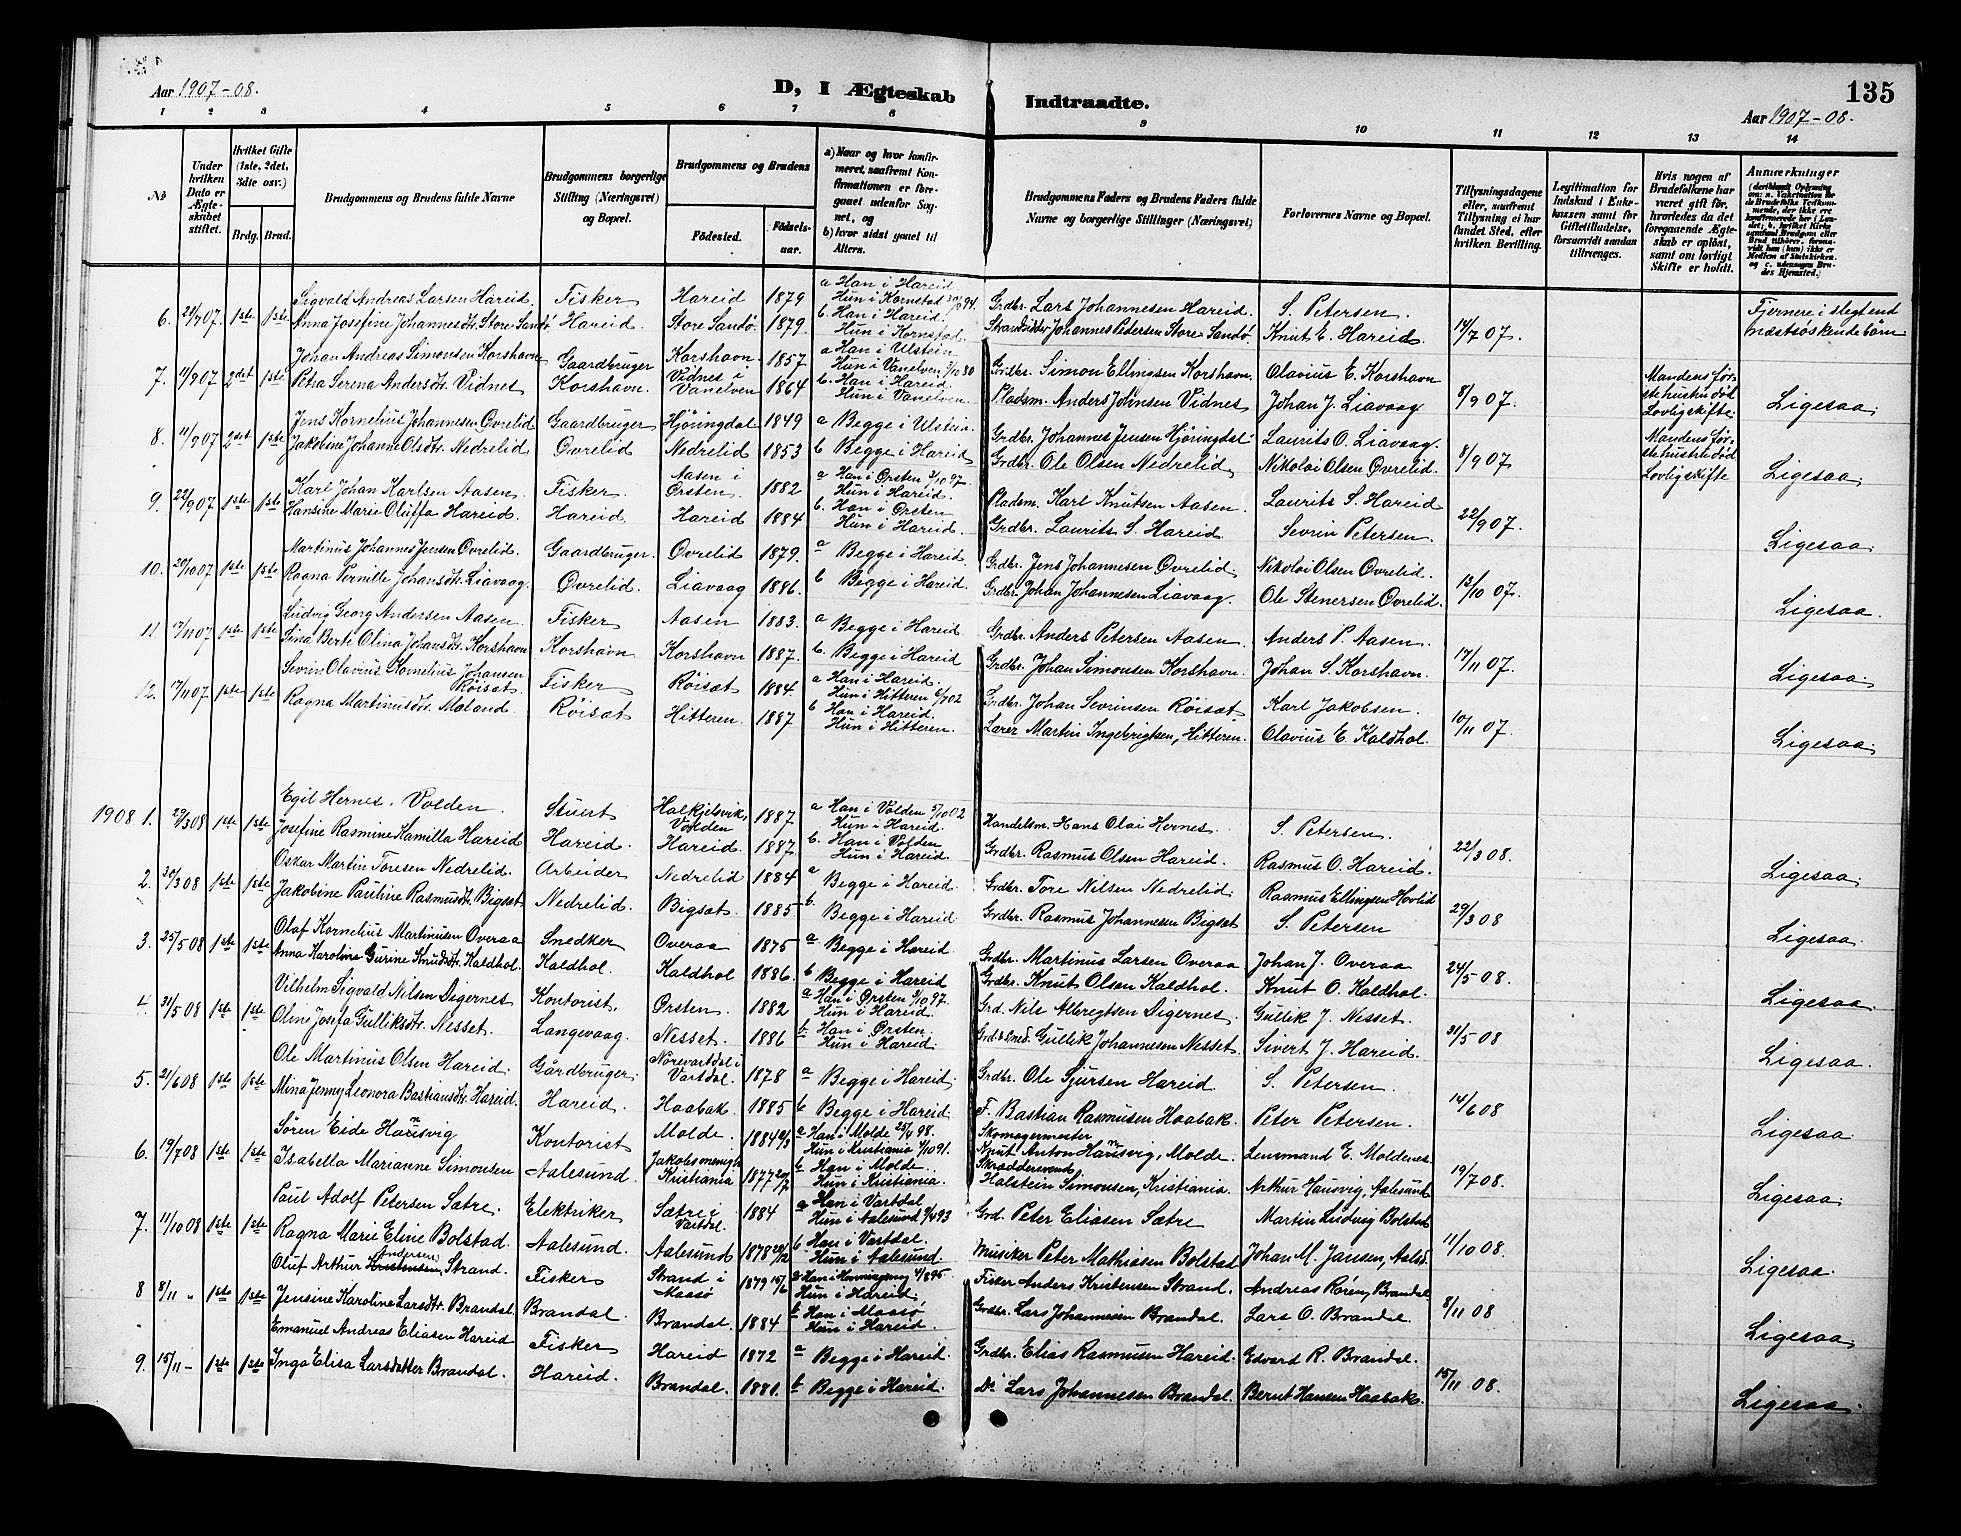 Aar 1907-08.
D, I Ægteskab Indtraadte.
135
Aar 1907-08.
1 2 3 4 5 6 7 8 9 10 11 12 13 14
No
Under hvilken Dato er Ægteskabet stiftet.
Hvilket Gifte (1ste, 2det, 3die osv.)
Brdg. Brud.
Brudgommens og Brudens fulde Navne
Brudgommens borgerlige Stilling (Næringsvei) og Bopæl.
Brudgommens og Brudens
Fødested.
Fødselsaar.
a) Naar og hvor konfirmeret, saafremt Konfirmationen er foregaaet udenfor Sognet, og
b) hvor sidst gaaet til Alters.
Brudgommens Faders og Brudens Faders fulde Navne og borgerlige Stillinger (Næringsvei)
Forlovernes Navne og Bopæl.
Tillysningsdagene eller, saafremt Tillysning ei har fundet Sted, efter hvilken Bevilling.
Legitimation for Indskud i Enkekassen samt for Giftetilladelse, forsaavidt saadan tiltrænges.
Hvis nogen af Brudefolkene har været gift før, hvorledes da det foregaaende Ægteskab er opløst, samt om lovligt Skifte er holdt.
Anmærkninger
6. 21/7 07 1ste 1ste Sigvald Andreas Larsen Hareid. Fisker Hareid 1879 a Han i Hareid. Hun i Kornstad 94. Grdbr. Lars Johannesen Hareid. S. Petersen. 14/7 07. Fjernere i slegt end
Anna Josefine Johannesdtr. Store Sandø Hareid. Store Sandø 1879. b. Han i Hareid. Hun i Kornstad. Strandsidder Johannes Pedersen Store Sandø. Knut E. Hareid. næstsøskendebørn
7. 11/9 07 2det 1ste Johan Andreas Simonsen Korshavn Gaardbruger Korshavn. 1857 a Han i Ulstein Hun i Vanelven 3/10 80 Grdbr. Simon Ellingsen Korshavn. Olavius E. Korshavn 8/9 07. Mandens første hustru død Lovlig skifte. Ligesaa.
Petra Serena Andersdtr. Vidnes Korshavn. Vidnes i Vanelven 1864 b. Han i Hareid. Hun i Vanelven. Pladsm. Anders Johnsen Vidnes Johan J. Liavaag
8. 11/9 07 2det 1ste Jens Kornelius Johannesen Øvrelid Gaardbruger Hjøringdal 1849 a Begge i Ulstein Grdbr. Johannes Jensen Hjøringdal Laurits O. Liavaag. 8/9 07 Mandens første hustru død Lovlig skifte Ligesaa.
Jakobine Johanne Olsdtr. Nedrelid Øvrelid Nedrelid 1853 b Begge i Hareid Grdbr. Ole Olsen Nedrelid Nikolai Olsen Øvrelid.
9. 22/9 07 1ste 1ste Karl Johan Karlsen Aasen. Fisker. Aasen i Ørsten. 1882 a Han i Ørsten 3/10 97. Hun i Hareid. Pladsm. Karl Knutsen Aasen. Laurits S. Hareid 22/9 07. Ligesaa.
Hansine Marie Oluffa Hareid. Hareid. Hareid 1884 b. Han i Ørsten Hun i Hareid. Grdbr. Laurits S. Hareid Sevrin Petersen.
10. 20/10 07 1ste 1ste Martinus Johannes Jensen Øvrelid. Gaardbruger. Øvrelid 1879. a Begge i Hareid. Grdbr. Jens Johannesen Øvrelid. Nikolai Olsen Øvrelid. 13/10 07. Ligesaa.
Ragna Pernille Johansdtr. Liavaag. Øvrelid. Liavaag 1886. b Begge i Hareid. Grdbr. Johan Johannesen Liavaag. Ole Stenersen Øvrelid.
11. 17/11 07 1ste 1ste Ludvig Georg Andersen Aasen Fisker Aasen 1883. a Begge i Hareid. Grdbr. Anders Petersen Aasen Anders P. Aasen. 17/11 07. Ligesaa.
Sina Berte Olina Johansdtr. Korshavn Korshavn Korshavn 1887. b. Begge i Hareid Grdbr. Johan Simonsen Korshavn. Johan S. Korshavn.
12. 17/11 07 1ste 1ste Sevrin Olavius Kornelius Johansen Røisæt. Fisker Røisæt 1884 a Han i Hareid. Hun i Hitteren 02 Grdbr. Johan Sevrinsen Røisæt Karl Jakobsen. 10/11 07. Ligesaa.
Ragna Martinusdtr. Moland. Røisæt Hitteren. 1887 b Han i Hareid. Hun i Hitteren. Lærer Martin Ingebrigtsen, Hitteren. Olavius E. Kaldhol.
1908. 1. 29/3 08 1ste 1ste Egil Hernes. Volden. Stuert Halkjelsvik, Volden 1887 a Han i Volden 5/10 02 Hun i Hareid. Handelsm. Hans Olai Hernes. S. Petersen. 22/3 08. Ligesaa.
Josefine Rasmine Kamilla Hareid Hareid. Hareid 1887. b. Han i Volden Hun i Hareid. Grdbr. Rasmus Olsen Hareid. Rasmus O. Hareid.
2. 30/3 08 1ste 1ste Oskar Martin Toresen Nedrelid. Arbeider Nedrelid 1884 a Begge i Hareid. Grdbr. Tore Nilsen Nedrelid. Rasmus Ellingsen Hovlid 29/3 08 Ligesaa.
Jakobine Pauline Rasmusdtr. Bigset Nedrelid. Bigset. 1885 b. Begge i Hareid. Grdbr. Rasmus Johannesen Bigset S. Petersen
3. 25/5 08 1ste 1ste Olaf Kornelius Martinusen Overaa Snedker Overaa 1875 a Begge i Hareid. Grdbr. Martinus Larsen Overaa Johan J. Overaa 24/5 08. Ligesaa
Anna Karoline Gurine Knudsdtr. Kaldhol. Kaldhol. Kaldhol 1886. b Begge i Hareid Grdbr. Knut Olsen Kaldhol. Knut O. Kaldhol.
4. 31/5 08 1ste 1ste Vilhelm Sigvald Nilsen Digernes Kontorist, Ørsten. 1882 a Han i Ørsten 3/10 97. Hun i Hareid. Grd. Nils Albregtsen Digernes. Gullik J. Nesset. 31/5 08 Ligesaa.
Oline Josefa Gulliksdtr. Nesset. Langevaag. Nesset. 1886 b Han i Ørsten. Hun i Hareid. Grd. & Sned. Gullik Johannesen Nesset. Sivert J. Hareid.
5. 21/6 08 1ste 1ste Ole Martinus Olsen Hareid. Gårdbruger. Nørevartdal i Vartdal. 1878 a Begge i Hareid. Grdbr. Ole Sjursen Hareid. S. Petersen. 14/6 08 Ligesaa.
Mina Jenny Leonora Bastiansdtr. Hareid. Hareid. Haabak. 1885 b Begge i Hareid. F. Bastian Rasmusen Haabak Peter Petersen.
6. 19/7 08 1ste 1ste Søren Eide Hausvig Kontorist Molde. 1884 9/3 a Han i Molde 25/4 98. Hun i Kristiania 4/10 91. Skomagermester Knut Anton Hausvig, Molde. Lensmand E. Moldenes. 19/7 08. Ligesaa
Isabella Marianne Simonsen Aalesund. Jakobs menigh. Kristiania 1877 b Han i Molde. Hun i Kristiania. Skræddersvend Halstein Simonsen, Kristiania. Arthur Hausvig, Aalesund
7. 11/10 08 1ste 1ste Paul Adolf Petersen Sætre. Elektriker Sætre i Vartdal. 1884 a Han i Vartdal. Hun i Aalesund 93 Grd. Peter Eliasen Sætre Martin Ludvig Bolstad 11/10 08. Ligesaa.
Ragna Marie Eline Bolstad. Aalesund. Aalesund 1878 b Han i Vartdal. Hun i Aalesund. Musiker Peter Mathiasen Bolstad Johan M. Jansen, Aalsd.
8 8/11 „ 1ste 1ste Oluf Arthur Andersen Kristensen, Strand. Fisker Strand i Maasø 1879 15/6 a Han i Honningsvaag 95 Hun i Hareid. Fisker Anders Kristensen Strand. Andreas Røren, Brandal 8/11 08 Ligesaa.
Jensine Karoline Larsdtr. Brandal Brandal. Brandal. 1884 b Han i Maasø Hun i Hareid. Grdbr. Lars Johannesen Brandal. Lars O. Brandal.
9. 15/11 - 1ste 1ste Emanuel Andreas Eliasen Hareid Fisker Hareid 1872 a Begge i Hareid. Grdbr. Elias Rasmusen Hareid. Edvard R. Brandal. 15/11 08. Ligesaa.
Inga Elisa Larsdatter Brandal. Hareid. Brandal. 1881. b Begge i Hareid. Do. Lars Johannesen Brandal. Bernt Hansen Haabak.